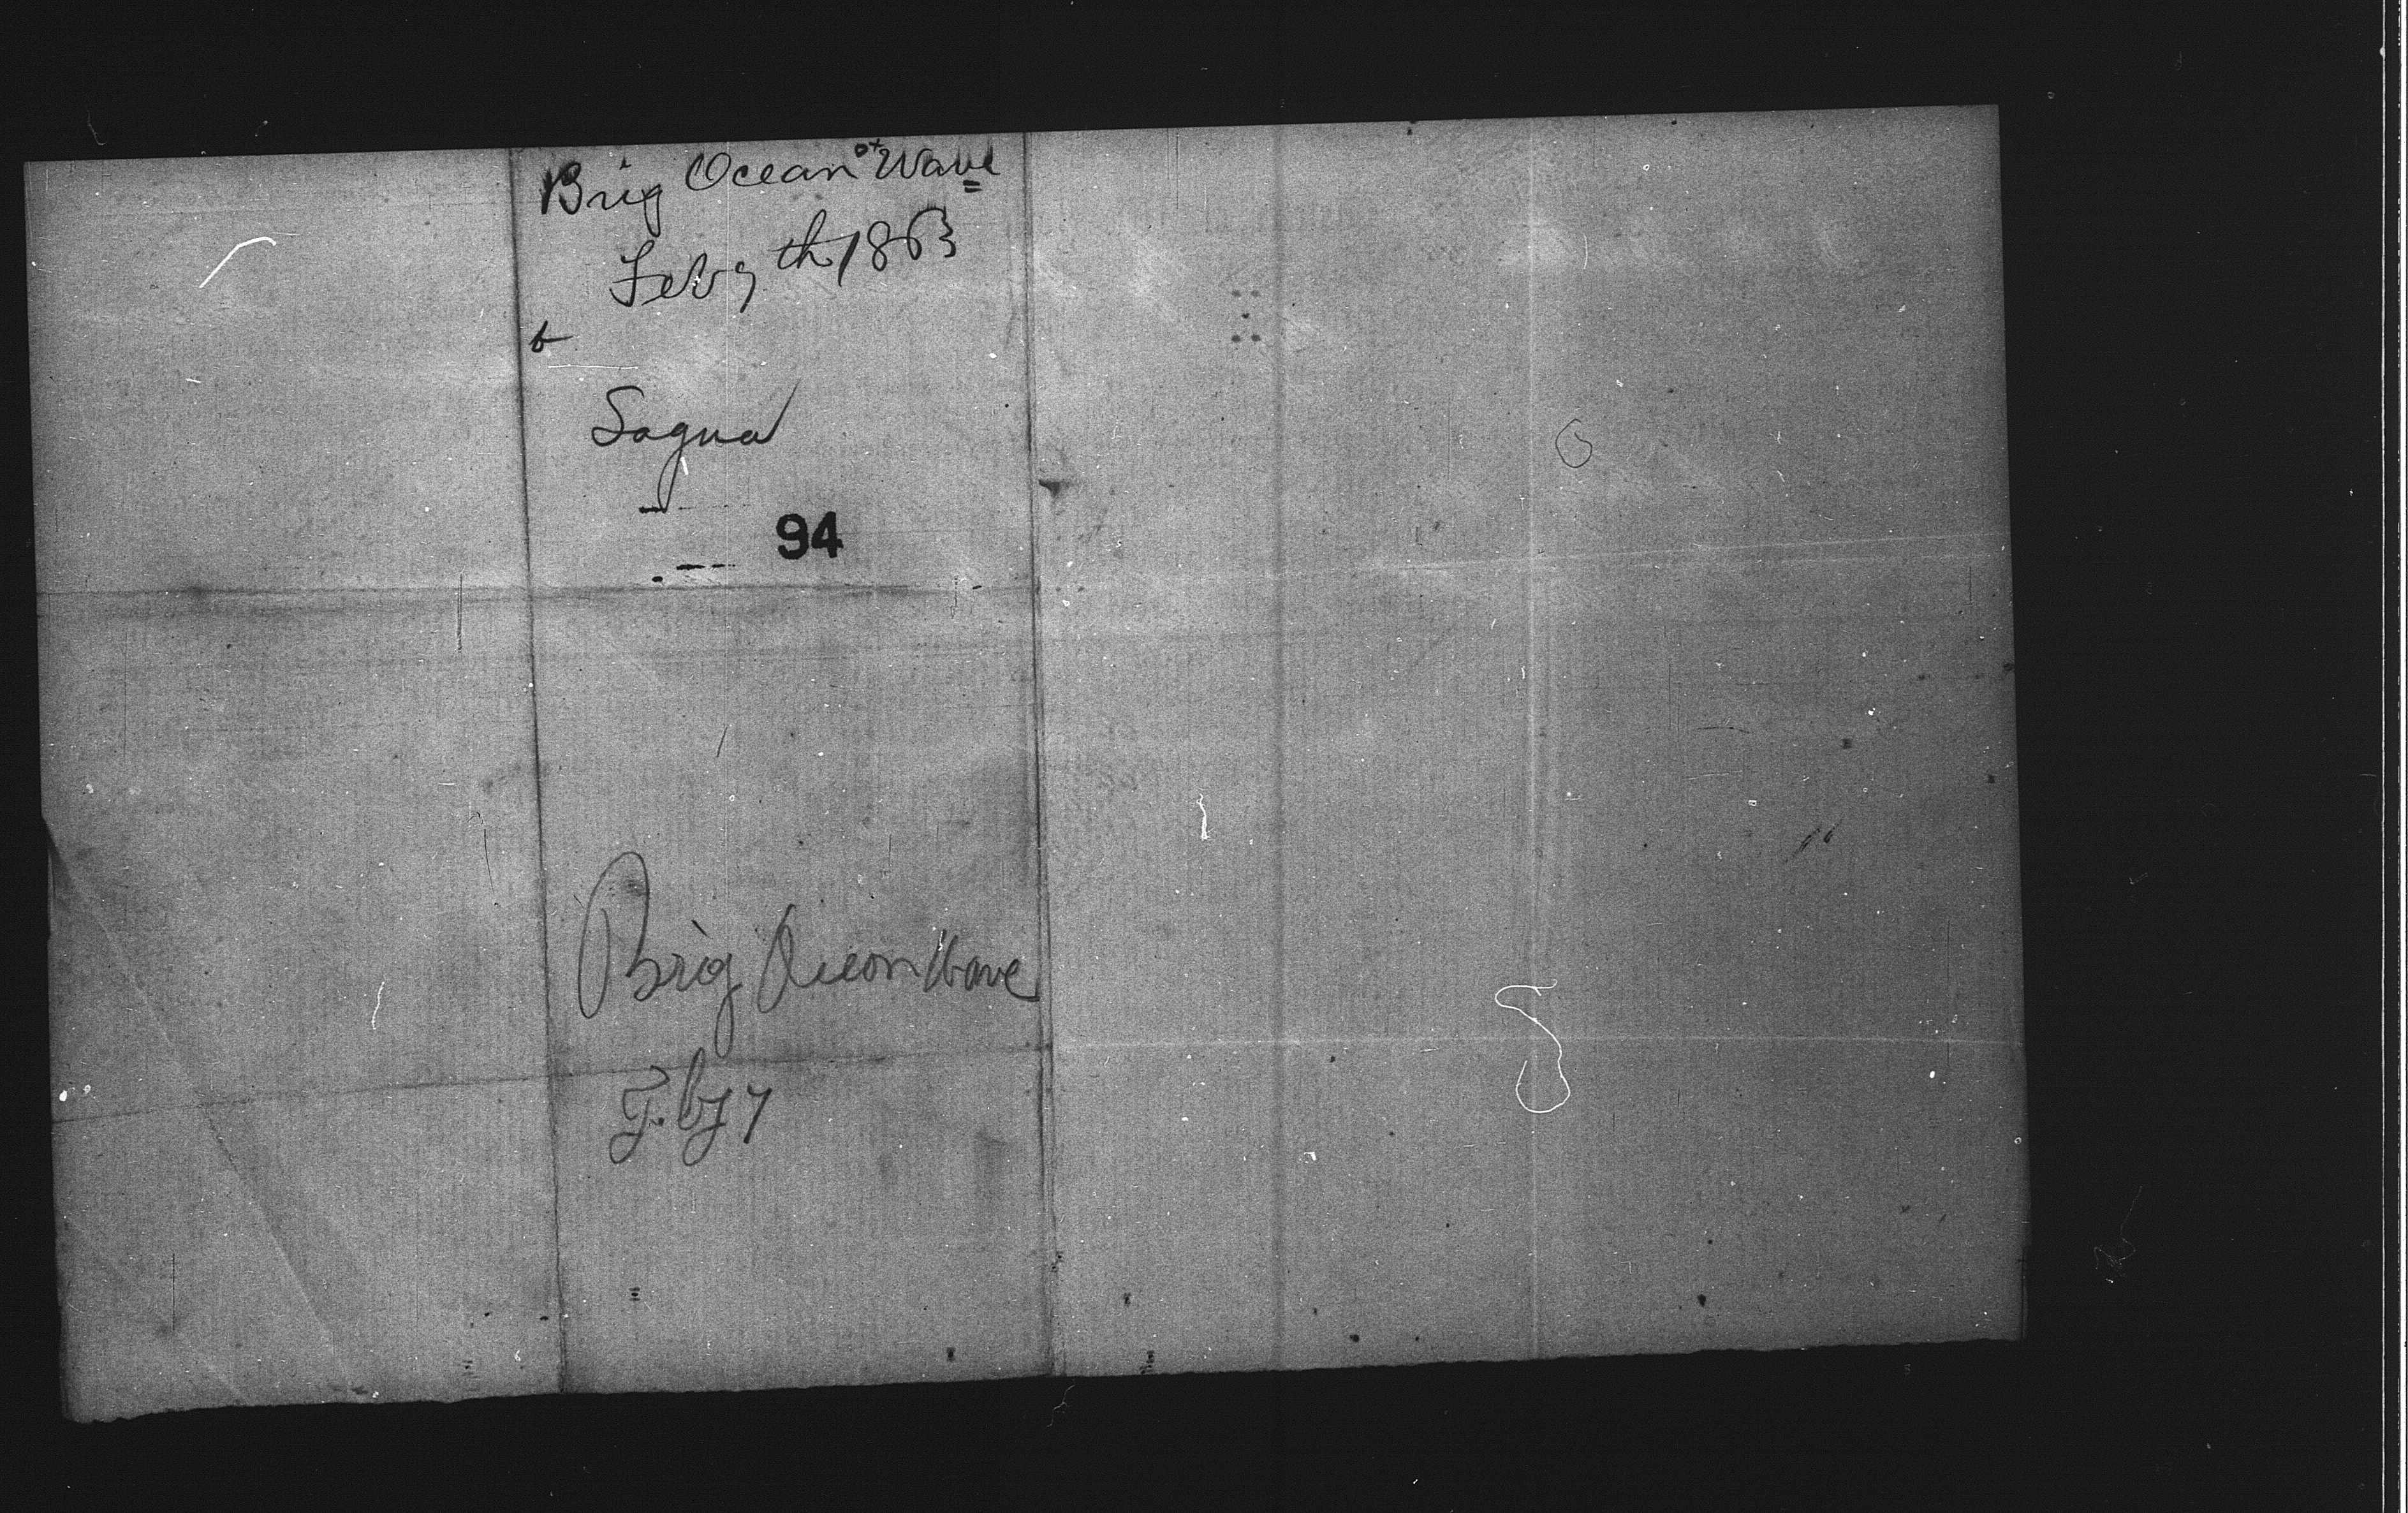 Brig Ocean Wave
Feby 7th 1863
Sagua
94
Brig Ocean Wave
Feby 7